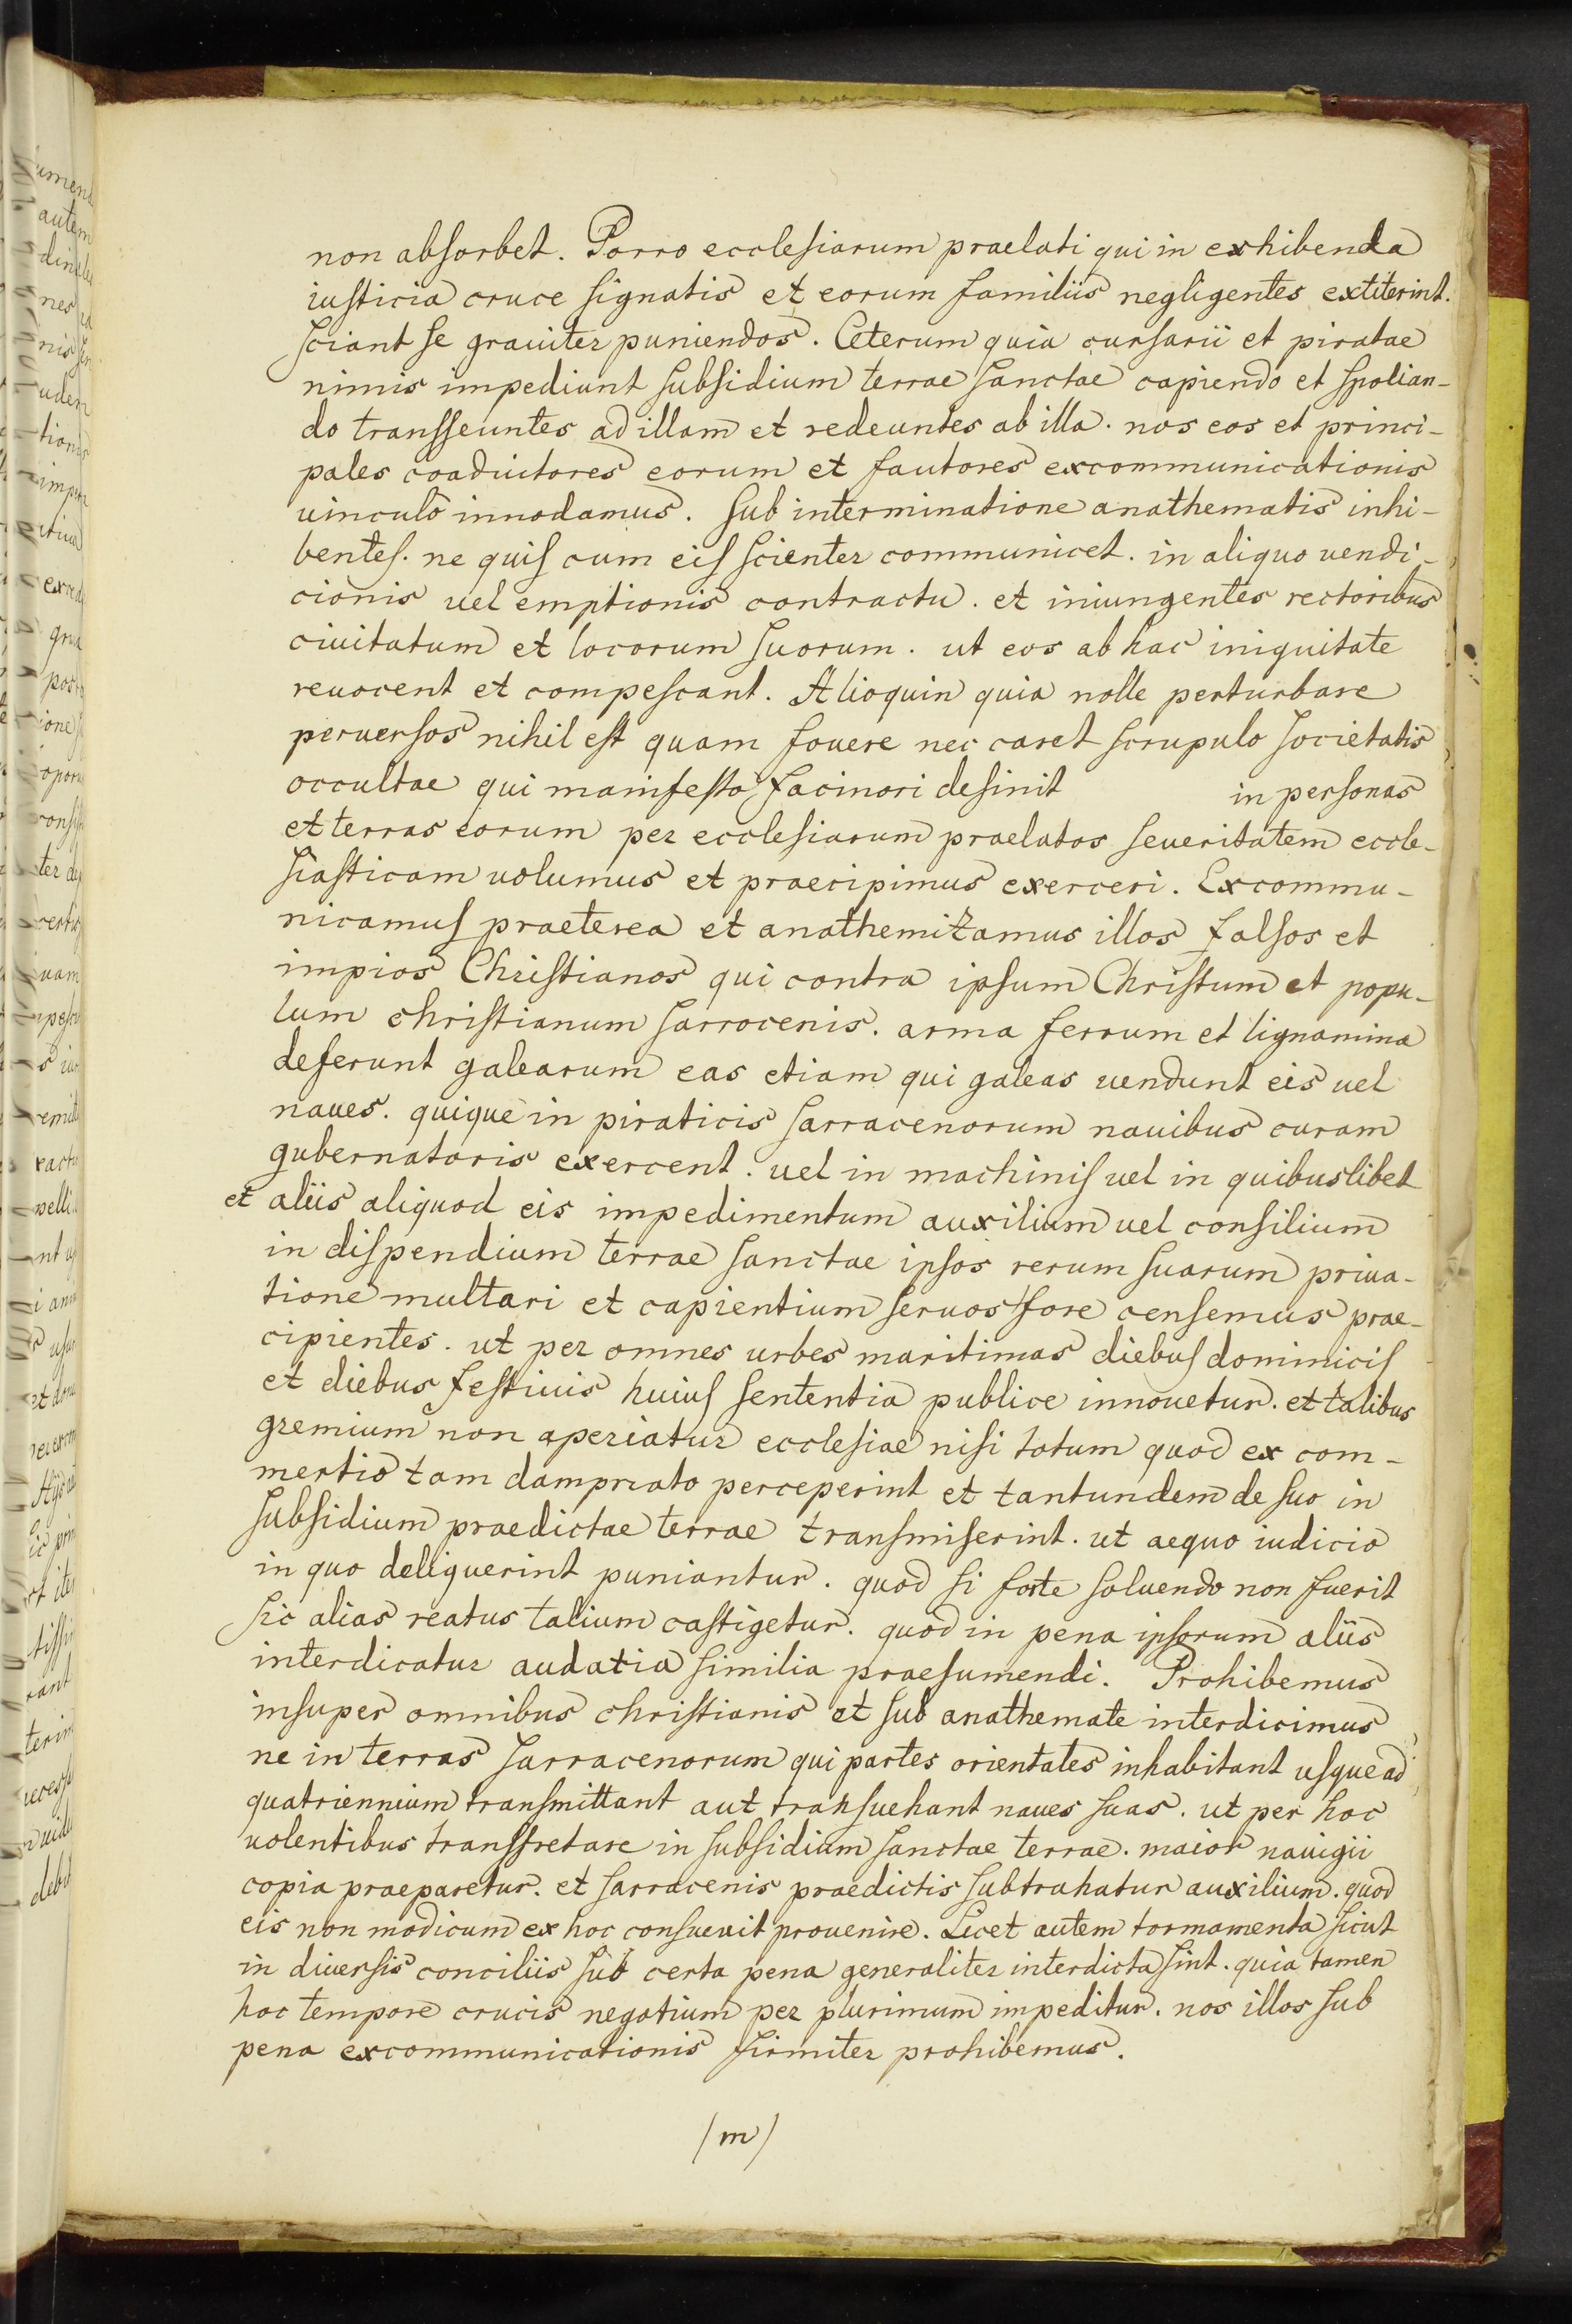 non absorbet. Porro ecclesiarum praelati qui in exhibenda
iusticia cruce signatis et eorum familiis negligentes extiterint.
sciant se grauiter puniendos. Ceterum quia cursarii et piratae
nimis impediunt subsidium terrae sanctae capiendo et spolian-
do transseuntes ad illam et redeuntes ab illa. nos eos et princi-
pales coadiutores eorum et fautores excommunicationis
uinculo innodamus. sub interminatione anathematis inhi-
bentes. ne quis cum eis scienter communicet. in aliquo uendi-
cionis uel emptionis contractu. et iniungentes rectoribus
ciuitatum et locorum suorum. ut eos ab hac iniquitate
reuocent et compescant. Alioquin quia nolle perturbare
peruersos nihil est quam fouere nec caret scrupulo societatis
occultae qui manifesto facinori desinit in personas
et terras eorum per ecclesiarum praelatos seueritatem eccle-
siasticam uolumus et praecipimus exerceri. Excommu-
nicamus praeterea et anathemizamus illos falsos et
impios Christianos qui contra ipsum Christum et popu-
lum christianum sarrocenis. arma ferrum et lignamina
deferunt galearum eas etiam qui galeas uendunt eis uel
naues. quique in piraticis sarracenorum nauibus curam
gubernatoris exercent. uel in machinis uel in quibuslibet
et aliis aliquod eis impedimentum auxilium uel consilium
in dispendium terrae sanctae ipsos rerum suarum priua-
tione multari et capientium seruos fore censemus prae-
cipientes. ut per omnes urbes maritimas diebus dominicis
et diebus festiuis huius sententia publice innouetur. et talibus
gremium non aperiatur ecclesiae nisi totum quod ex com-
mertio tam dampnato perceperint et tantundem de suo in
subsidium praedictae terrae transmiserint. ut aequo iudicio
in quo deliquerint puniantur. quod si forte soluendo non fuerit
sic alias reatus talium castigetur. quod in pena ipsorum aliis
interdicatur audatia similia praesumendi. Prohibemus
insuper omnibus christianis et sub anathemate interdicimus
ne in terras sarracenorum qui partes orientales inhabitant usque ad
quatriennium transmittant aut transuehant naues suas. ut per hoc
uolentibus transfretare in subsidium sanctae terrae. maior nauigii
copia praeparetur. et sarracenis praedictis subtrahatur auxilium. quod
eis non modicum ex hoc consueuit prouenire. Licet autem tormamenta sicut
in diuersis conciliis sub certa pena generaliter interdicta sint. quia tamen
hoc tempore crucis negotium per plurimum impeditur. nos illos sub
pena excommunicationis firmiter prohibemus.
/m/